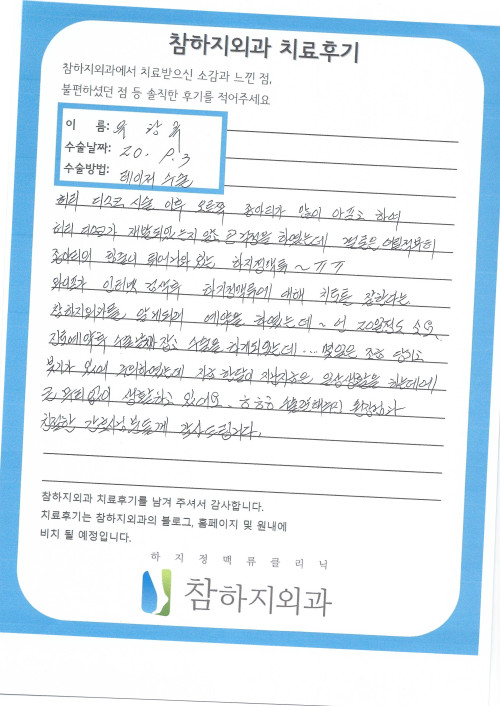 참하지외과 치료후기
참하지외과에서 치료받으신 소감과 느낀 점,
불편하셨던 점 등 솔직한 후기를 적어주세요
이 름:
수술날짜: 20. 9. 3
수술방법: 레이저 수술
허리 디스크 시술 이후 오른쪽 종아리가 많이 아프고 하여
허리 디스크가 재발되었는지 않은 큰 걱정을 하였는데 결론은
종아리의 힘줄이 튀어나와 있는 하지정맥류 ~ ㅠㅠ
와이프가 인터넷 검색후 하지정맥류에 대해 치료를 잘한다는
참하지외과를 알게되어 예약을 하였는데 ~ 어 20일정도 소요,
진료예약후 수술날짜잡고 수술을 하게되었는데 ... 몇일은 조금 당기고
붓기가 있어 걱정하였는데 지금 한달이 지난지금은 일상생활을 하는데에
큰 무리없이 생활하고 있어요. ㅎㅎㅎ 수술해주신 원장님과
친절한 간호사님분들께 감사드립니다.
참하지외과 치료후기를 남겨 주셔서 감사합니다.
치료후기는 참하지외과의 블로그, 홈페이지 및 원내에
비치 될 예정입니다.
하지정맥류클리닉
참하지외과